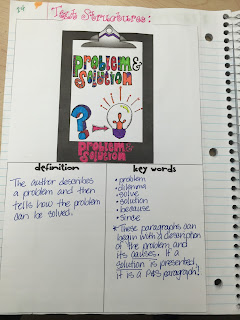 29
Text Structures:
problem &
solution
?
problem &
solution
definition
The author describes
a problem and then
tells how the problem
can be solved.
key words
• problem
• dilemma
• solve
• solution
• because
• since
* These paragraphs can
begin with a description
of the problem and
its causes. If a
solution is presented,
it is a P&S paragraph!